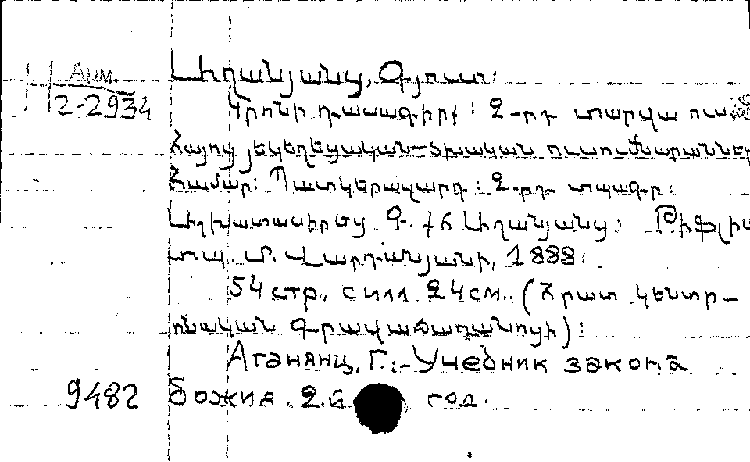 Арм.
2-2934
Աղանյանց, Գյուտ:
Կրոնի դասագիրք: 2-րդ տարվա
հայոց յեկեղեցական-ծխական ուսումնարանների
համար: Պատկերազարդ: 2-րդ տպագր:
Աշխատասիրեց Գ. քհ Աղանյանց: Թիֆլիս
տպ. Մ. Վարդանյանի, 1888:
54 стр., с илл. 24см. (Հրատ. կենտր-
ոնական գրավաճառանոցի):
Аганянц, Г.:-Учебник закона
9482 божия. 2й год.